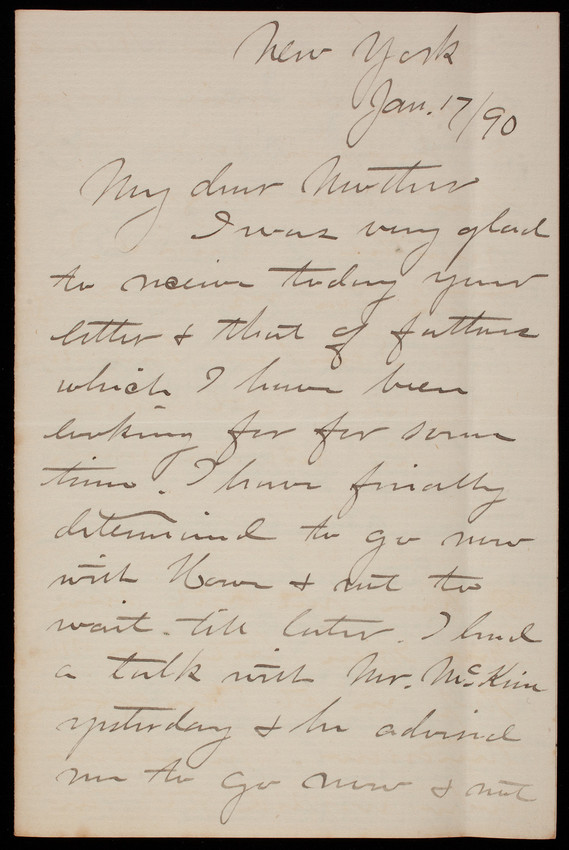 New York
Jan. 17/90
My dear Mother
I was very glad
to receive today your
letter & that of fathers
which I have been
looking for for some
time. I have finally
determined to go now
with Howe & not to
wait till later. I had
a talk with Mr. McKim
yesterday & he advised
me to go now & not